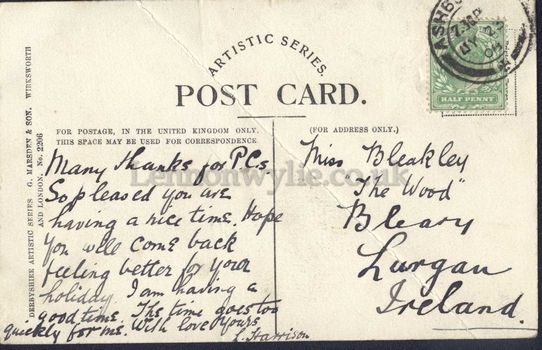 ARTISTIC SERIES.
POST CARD.
HALF PENNY
DERBYSHIRE ARTISTIC SERIES G. MARSDEN & SON. WIRKSWORTH
AND LONDON. No. 2206
FOR POSTAGE, IN THE UNITED KINGDOM ONLY,
THIS SPACE MAY BE USED FOR CORRESPONDENCE
(FOR ADDRESS ONLY.)
Many thanks for P.C.s
So pleased you are
having a nice time. Hope
you will come back
feeling better for your
holiday. I am having a
good time. The time goes too
quickly for me. With love Yours
Harrison
Miss Bleakley
"The Wood"
Bleary
Lurgan
Ireland.
Lennonwylie.co.uk